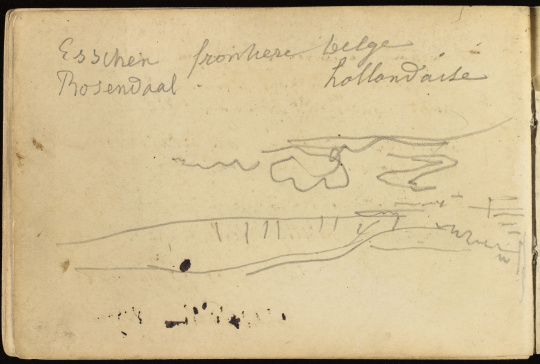 Esschen frontiere belge
Rosendaal hollandaise